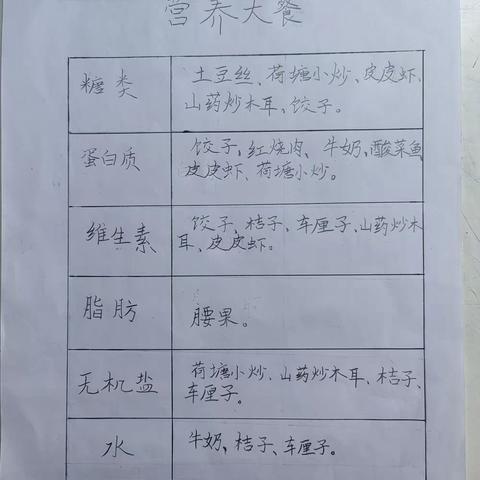 营养大餐
糖类
土豆丝、荷塘小炒、皮皮虾、
山药炒木耳、饺子。
蛋白质
饺子、红烧肉、牛奶、酸菜鱼
皮皮虾、荷塘小炒。
维生素
饺子、桔子、车厘子、山药炒木
耳、皮皮虾。
脂肪
腰果。
无机盐
荷塘小炒、山药炒木耳、桔子、
车厘子。
水
牛奶、桔子、车厘子。